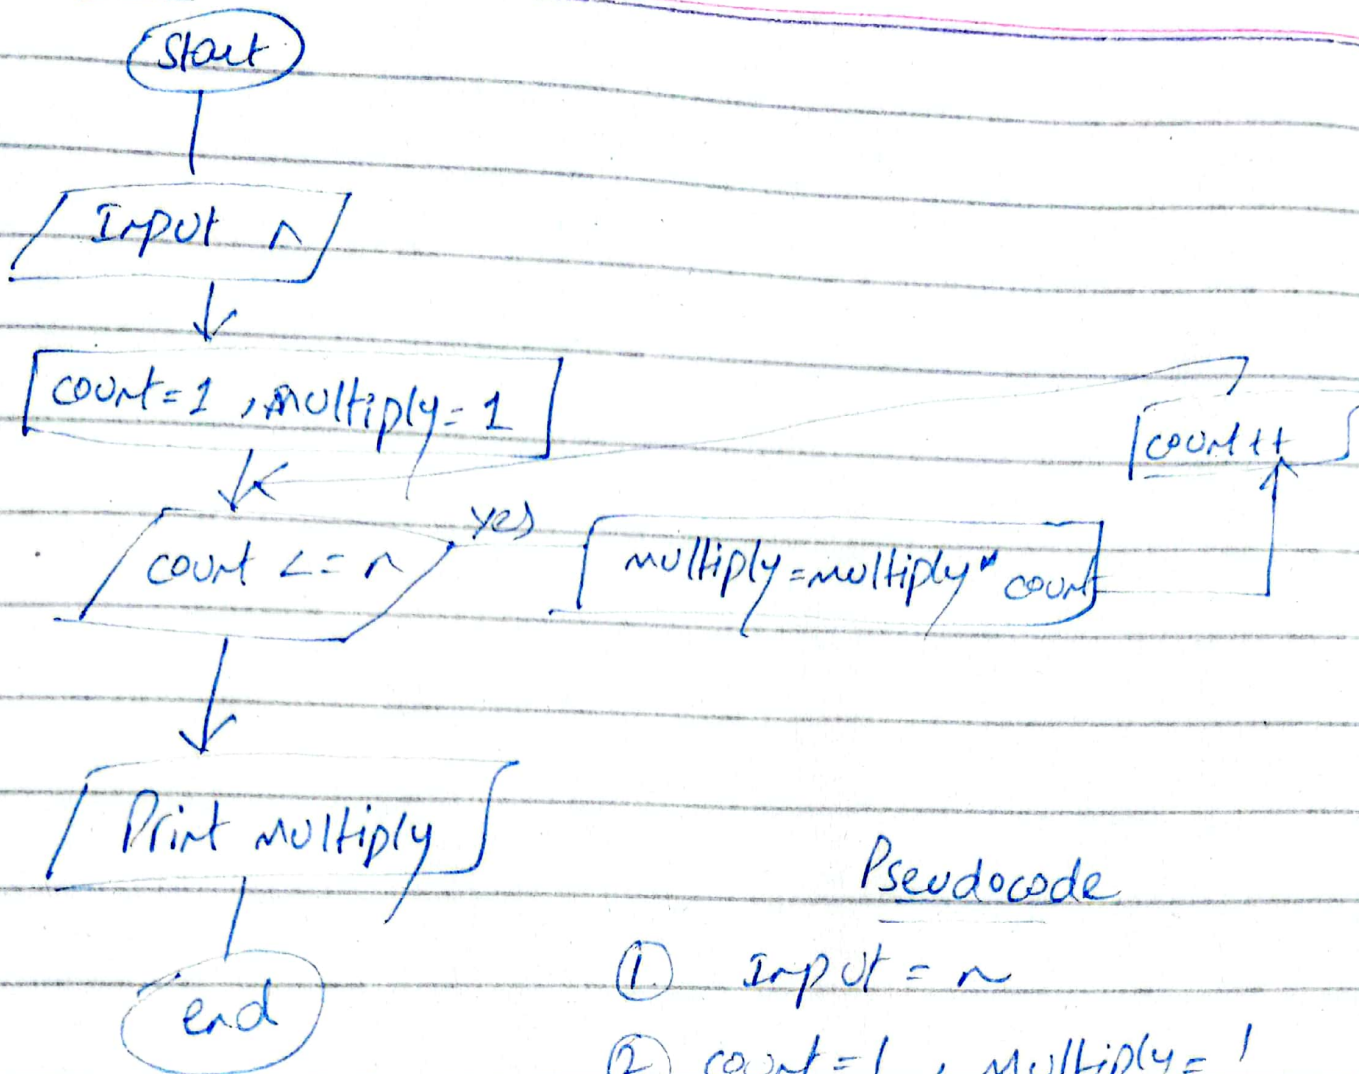 Start
Input n
count=1, multiply=1
count++
yes
count <= n
multiply=multiply* count
Print multiply
end
Pseudocode
① Input = n
② count=1, multiply=1